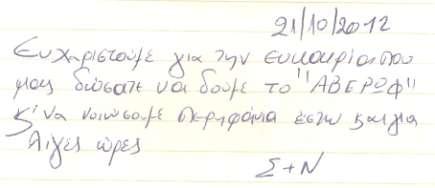 21/10/2012
Ευχαριστούμε για την ευκαιρία που
μας δώσατε να δούμε το "ΑΒΕΡΩΦ"
κ' να νοιώσουμε περηφάνια έστω και για
λίγες ώρες
Σ+Ν